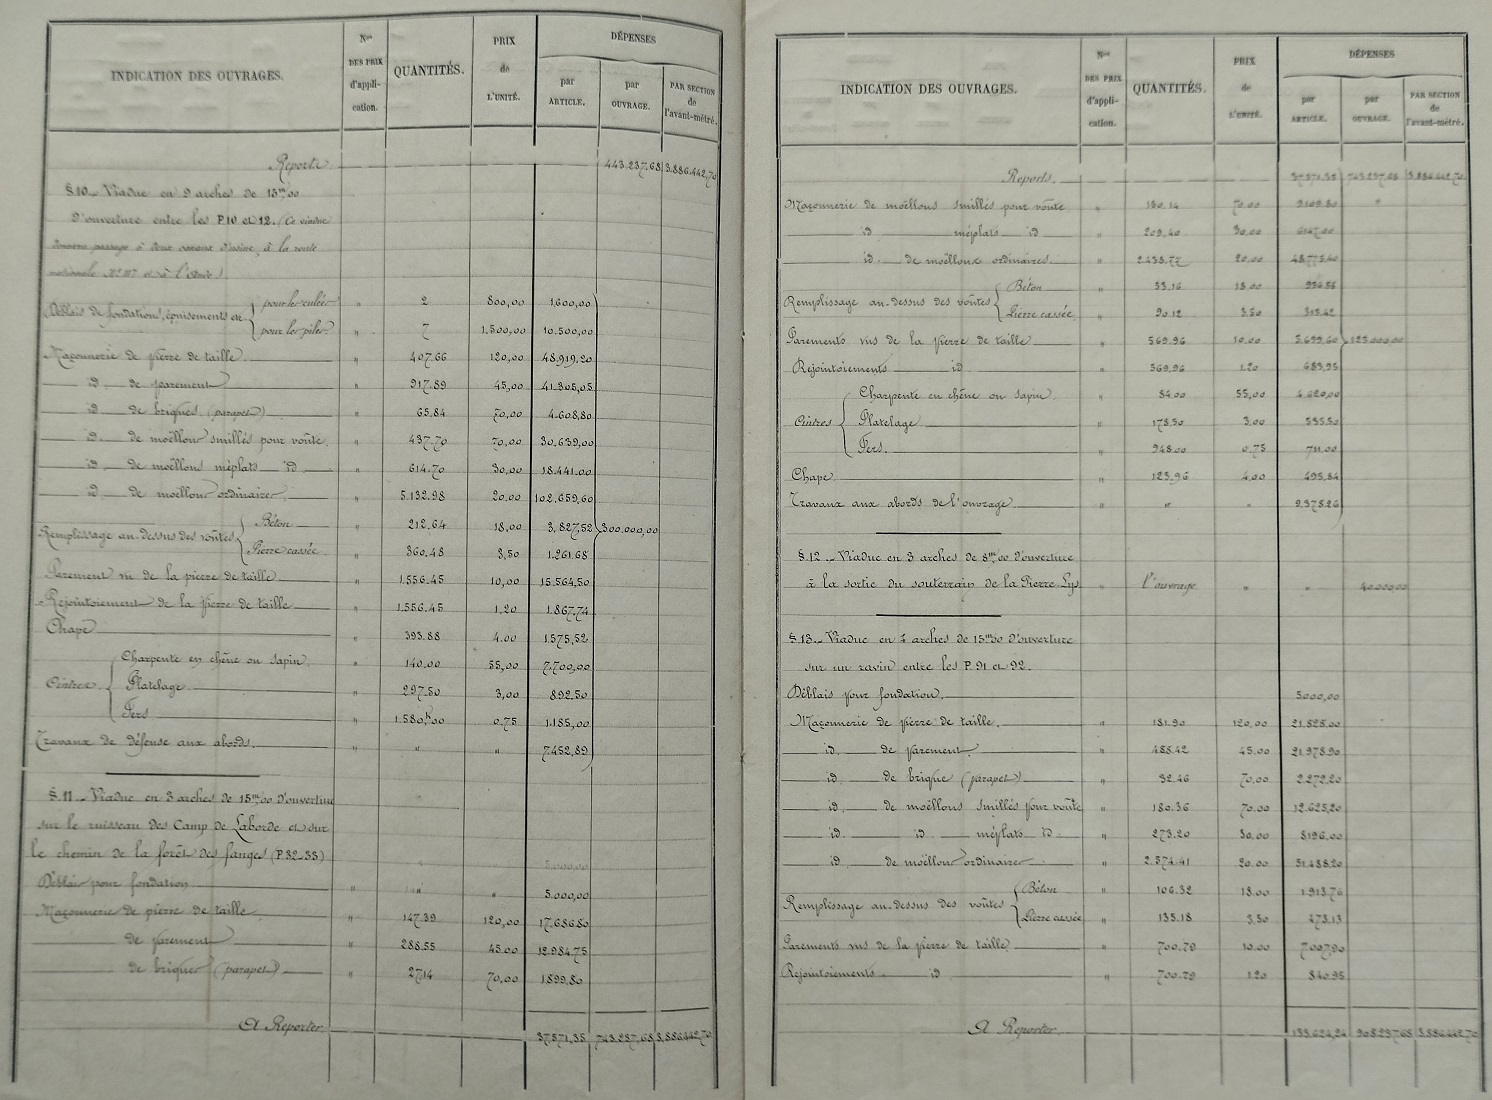 INDICATION DES OUVRAGES.
Nos DES PRIX d'appli-cation.
QUANTITÉS.
PRIX de L'UNITÉ.
DÉPENSES
par ARTICLE.
par OUVRAGE.
PAR SECTION de l'avant-métré.
Reports 443.237,68 3.886.442,70
§.10 _ Viaduc en 9 arches de 15m00
d'ouverture entre les P.10 et 12. (Ce viaduc
donnera passage à deux canaux d'usine, à la route
nationale No 117 et à l'Aude)
Déblais de fondations, épuisements etc { pour les culées " 2 800,00 1,600,00
pour les piles " 7 1.500,00 10.500,00
Maçonnerie de pierre de taille " 407.66 120,00 48,919,20
id de parement " 917.89 45,00 41.305,05
id de briques (parapet) " 65.84 70,00 4.608,80
id de moëllons smillés pour voûte " 437.70 70,00 30.639,00
id de moëllons méplats id " 614.70 30,00 18.441.00
id de moëllons ordinaires " 5.132.98 20.00 102.659,60
Remplissage au-dessus des voûtes { Béton " 212,64 18,00 3,827,52 300.000,00
Pierre cassée " 360.48 3,50 1.261.68
Parement vu de la pierre de taille " 1.556.45 10,00 15,564,50
Rejointoiement de la pierre de taille " 1,556.45 1,20 1.867,74
Chape " 393.88 4.00 1575,52
Cintres { Charpente en chêne ou sapin " 140,00 55,00 7.700,00
Platelage " 297.50 3,00 892.50
Fers " 1.580k00 0.75 1.185,00
Travaux de défense aux abords. " " " 7452,89
§.11 _ Viaduc en 3 arches de 15m00 d'ouverture
sur le ruisseau des Camp de Laborde et sur
le chemin de la forêt des fanges (P.32-33)
Déblais pour fondation " " " 5.000,00
Maçonnerie de pierre de taille " 147.39 120,00 17.686.80
de parement " 288.55 45.00 12.984.75
de briques (parapet) " 27.14 70,00 1899.80
A Reporter 37.571,35 743.237,68 3.886.442,70
INDICATION DES OUVRAGES.
Nos DES PRIX d'appli-cation.
QUANTITÉS.
PRIX de L'UNITÉ.
DÉPENSES
par ARTICLE.
par OUVRAGE.
PAR SECTION de l'avant-métré.
Reports. 37.571.35 743,237,68 3.886.442,70
Maçonnerie de moëllons smillés pour voûte " 130.14 70.00 9109.80 "
id méplats id " 209,40 30,00 6147.00
id. de moëllons ordinaires. " 2.438.77 20.00 48.775,40
Remplissage au-dessus des voûtes { Béton " 53.16 18.00 956.88
Pierre cassée " 90.12 3.50 315.42
Parements vus de la pierre de taille " 569.96 10,00 5.699,60 125.000,00
Rejointoiements id " 569,96 1.20 683,95
Cintres { Charpente en chêne ou sapin. " 84.00 55,00 4.620,00
Platelage " 178.50 3.00 535.50
Fers. " 948.00 0.75 711.00
Chape " 123.96 4.00 495,84
Travaux aux abords de l'ouvrage " " " 9.378.26
§.12 _ Viaduc en 3 arches de 8m00 d'ouverture
à la sortie du souterrain de la Pierre-Lys. " l'ouvrage " " 40.000,00
§.13 _ Viaduc en 4 arches de 15m00 d'ouverture
sur un ravin entre les P.91 et 92.
Déblais pour fondation. 5000,00
Maçonnerie de pierre de taille " 181.90 120,00 21.828.00
id. de parement " 488.42 45.00 21.978.90
id. de brique (parapet) " 32.46 70,00 2.272,20
id. de moëllons smillés pour voûte " 180.36 70.00 12.625,20
id. id méplats id " 273.20 30,00 8196.00
id. de moëllons ordinaires " 2.574.41 20.00 51.488.20
Remplissage au-dessus des voûtes { Béton " 106.32 18.00 1913.76
Pierre cassée " 135.18 3,50 473.13
Parements vus de la pierre de taille " 700.79 10.00 7007,90
Rejointoiements id " 700.79 1.20 840.95
A Reporter 133.624,24 908.237,68 3.886.442,70